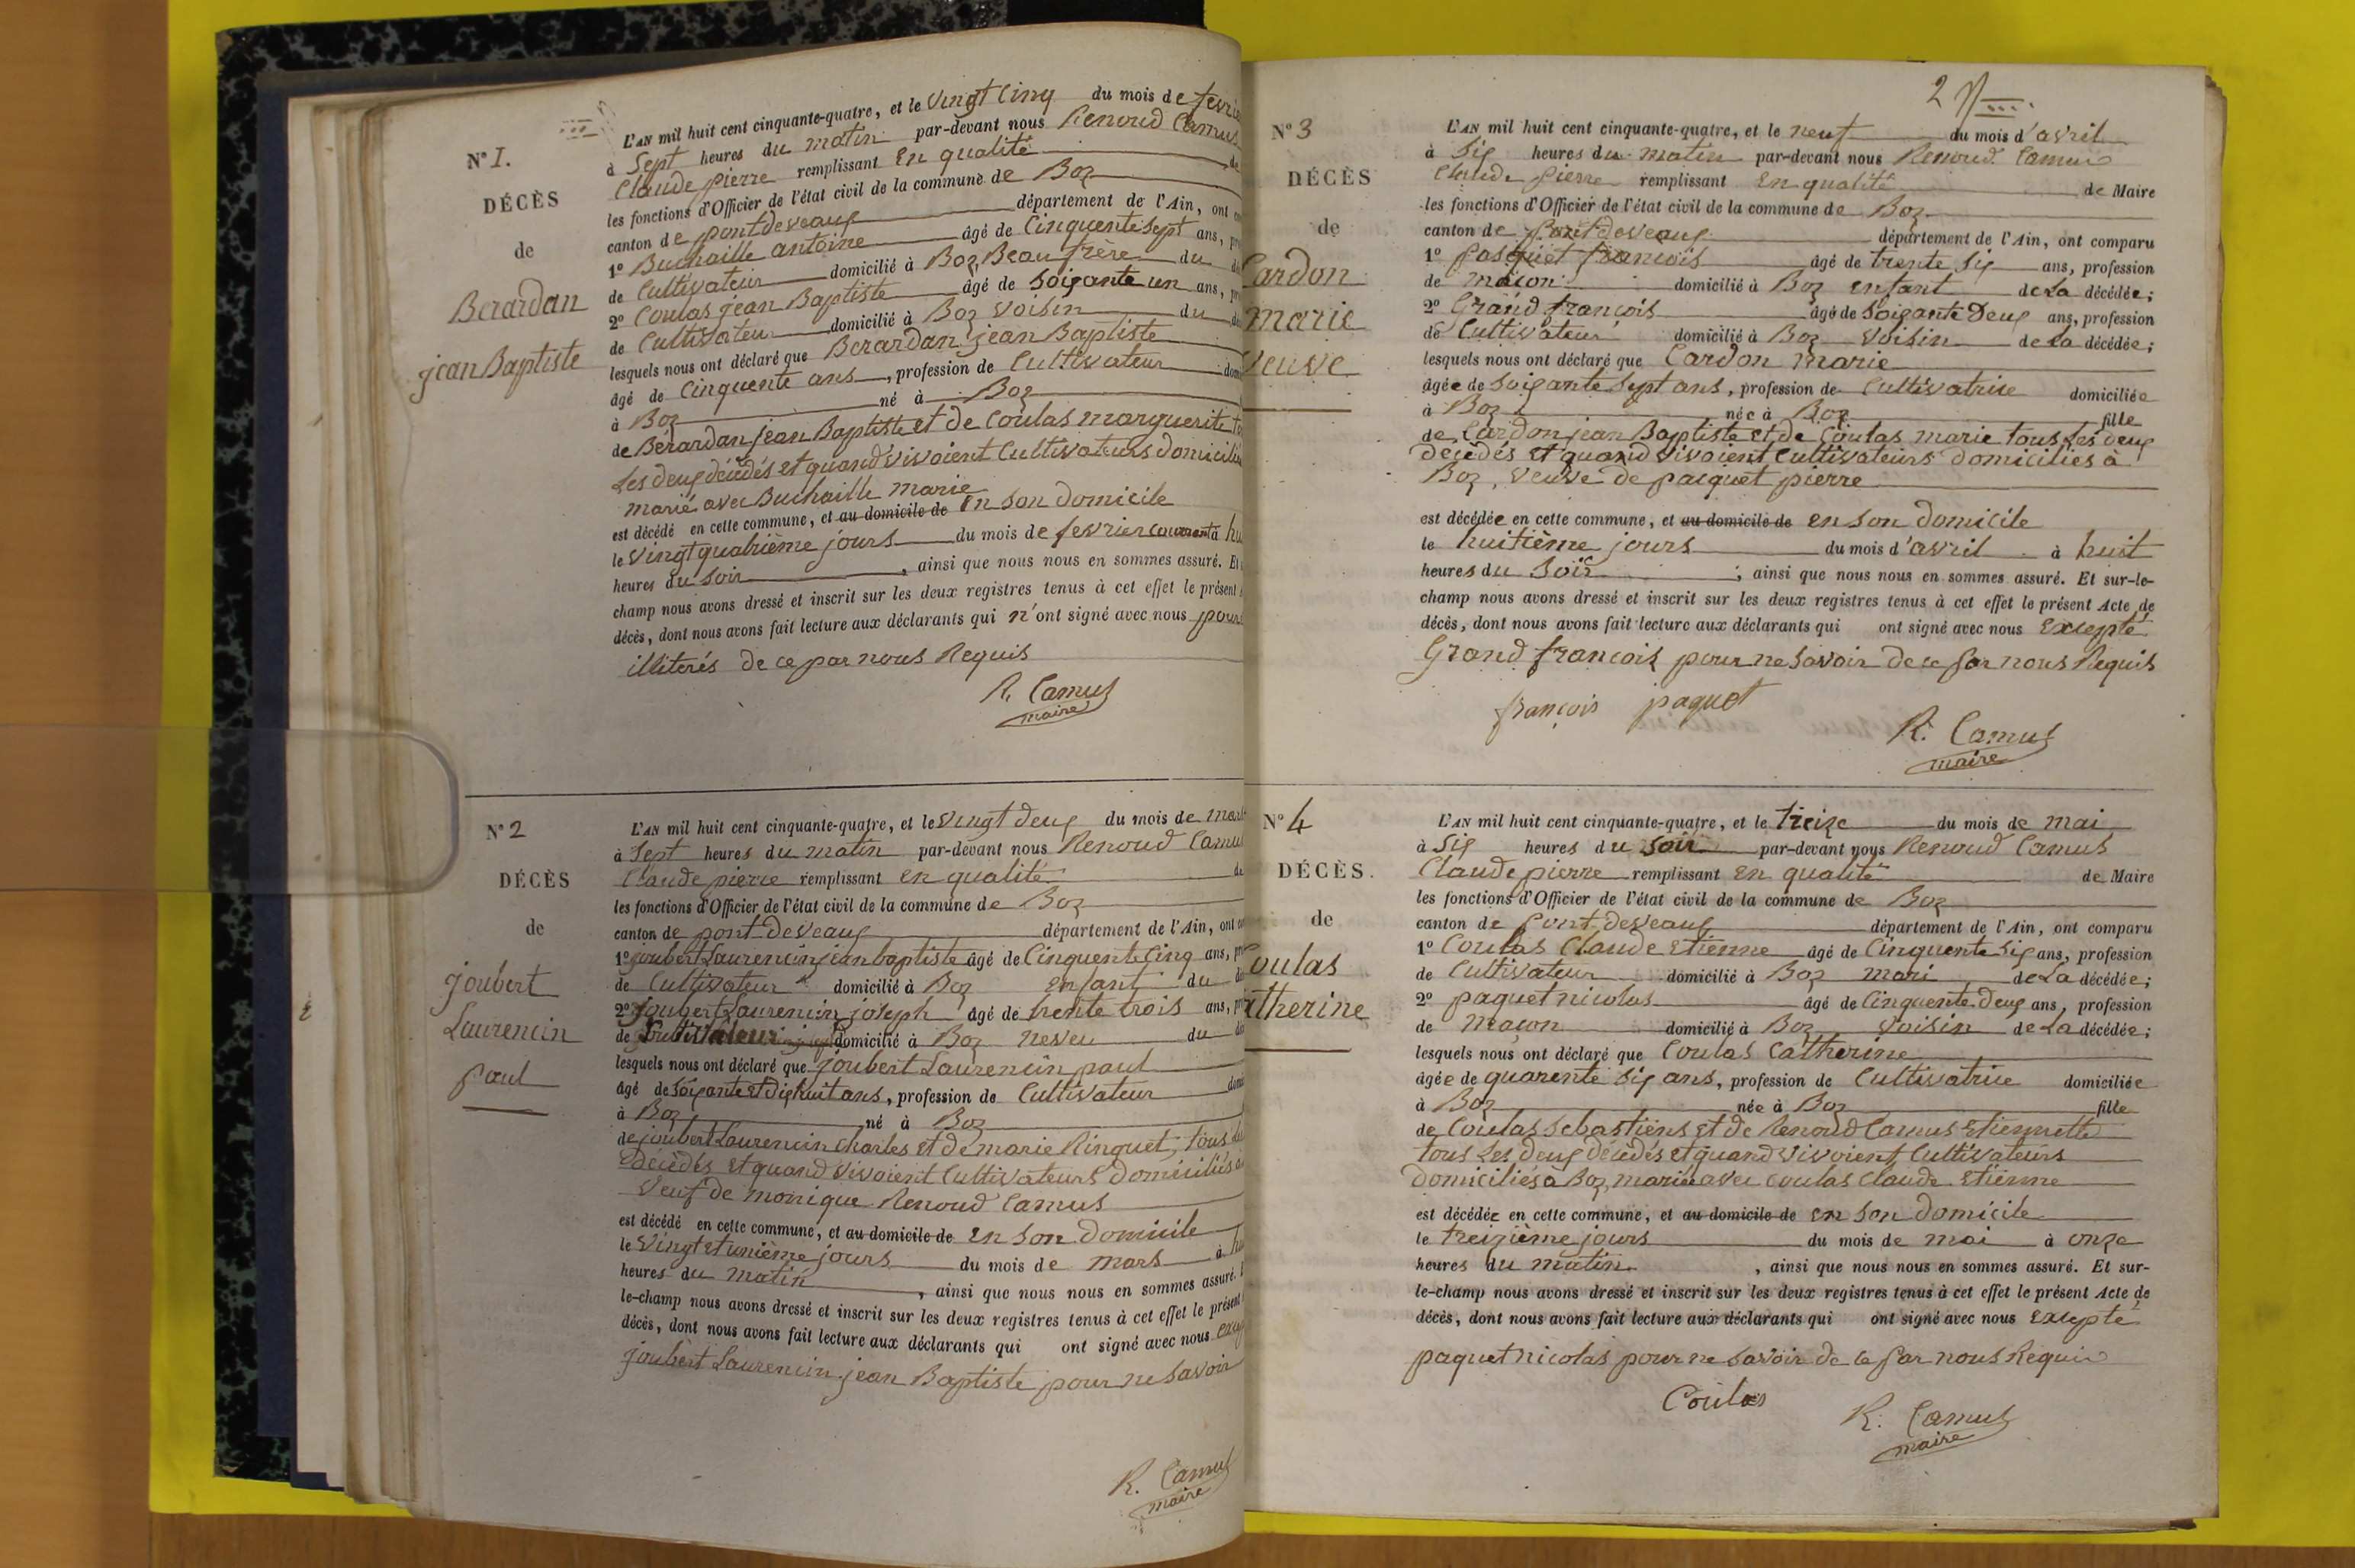 N° 1.
DÉCÈS
de
Berardan
jean Baptiste
L'AN mil huit cent cinquante-quatre, et le vingt cinq du mois de fevrie
à Sept heures du matin par-devant nous Renoud Camus
Claude pierre remplissant en qualité de
les fonctions d'Officier de l'état civil de la commune de Boz
canton de pontdevaux département de l'Ain, ont
1° Buchaille antoine âgé de Cinquente Sept ans,
de Cultivateur domicilié à Boz, Beau frère du
2° Coulas jean Baptiste âgé de soixante un ans,
de Cultivateur domicilié à Boz voisin du
lesquels nous ont déclaré que Berardan jean Baptiste
âgé de Cinquente ans, profession de Cultivateur
à Boz né à Boz
de Bérardan jean Baptiste et de Coulas marguerite
Les deux décédés et quand vivoient Cultivateurs domicilié
marié avec Buchaille marie
est décédé en cette commune, et au domicile de en son domicile
le vingt quatrième jours du mois de fevrier courant à
heures du soir, ainsi que nous nous en sommes assuré. Et
champ nous avons dressé et inscrit sur les deux registres tenus à cet effet le présent
décès, dont nous avons fait lecture aux déclarants qui n'ont signé avec nous pour
illiterés de ce par nous Requis
R. Camus
maire
N° 2
DÉCÈS
de
joubert
Laurencin
paul
L'AN mil huit cent cinquante-quatre, et le vingt deux du mois de mars
à Sept heures du matin par-devant nous Renoud Camus
Claude pierre remplissant en qualité de
les fonctions d'Officier de l'état civil de la commune de Boz
canton de pont-deveaux département de l'Ain, ont
1° joubert Laurencin jean baptiste âgé de Cinquente Cinq ans,
de Cultivateur domicilié à Boz enfant du
2° joubert Laurencin joseph âgé de trente trois ans,
de Cultivateur domicilié à Boz neveu du
lesquels nous ont déclaré que joubert Laurencin paul
âgé de soixante et dix huit ans, profession de Cultivateur
à Boz né à Boz
de joubert Laurencin Charles et de marie Ringuet, tous
décédés et quand vivoient Cultivateurs domiciliés
veuf de monique Renoud Camus
est décédé en cette commune, et au domicile de en son domicile
le vingt et unième jours du mois de mars à
heures du matin, ainsi que nous nous en sommes assuré.
le-champ nous avons dressé et inscrit sur les deux registres tenus à cet effet le présent
décès, dont nous avons fait lecture aux déclarants qui ont signé avec nous
joubert Laurencin jean Baptiste pour ne savoir
R. Camus
maire
2
N° 3
DÉCÈS
de
Cardon
marie
veuve
L'AN mil huit cent cinquante-quatre, et le neuf du mois d'avril
à Six heures du matin par-devant nous Renoud Camus
Claude pierre remplissant en qualité de Maire
les fonctions d'Officier de l'état civil de la commune de Boz
canton de pontdeveaux département de l'Ain, ont comparu
1° pasquet francois âgé de trente Six ans, profession
de maçon domicilié à Boz enfant de La décédée;
2° Grand francois âgé de soixante deux ans, profession
de Cultivateur domicilié à Boz voisin de La décédée;
lesquels nous ont déclaré que Cardon marie
âgée de soixante sept ans, profession de Cultivatrice domiciliée
à Boz née à Boz fille
de Cardon jean Baptiste et de Coulas marie tous Les deux
décédés et quand vivoient Cultivateurs domiciliés à
Boz, veuve de pacquet pierre
est décédée en cette commune, et au domicile de en son domicile
le huitième jours du mois d'avril à huit
heures du soir; ainsi que nous nous en sommes assuré. Et sur-le-
champ nous avons dressé et inscrit sur les deux registres tenus à cet effet le présent Acte de
décès, dont nous avons fait lecture aux déclarants qui ont signé avec nous Excepté
Grand francois pour ne savoir de ce par nous Requis
françois paquet
R. Camus
maire
N° 4
DÉCÈS.
de
Coulas
Catherine
L'AN mil huit cent cinquante-quatre, et le treize du mois de mai
à Six heures du soir par-devant nous Renoud Camus
Claude pierre remplissant en qualité de Maire
les fonctions d'Officier de l'état civil de la commune de Boz
canton de pont-deveaux département de l'Ain, ont comparu
1° Coulas Claude Etienne âgé de Cinquente Six ans, profession
de Cultivateur domicilié à Boz mari de La décédée;
2° paquet nicolas âgé de Cinquente deux ans, profession
de maçon domicilié à Boz voisin de La décédée;
lesquels nous ont déclaré que Coulas Catherine
âgée de quarente Six ans, profession de Cultivatrice domiciliée
à Boz née à Boz fille
de Coulas Sebastiens et de Renoud Camus Etiennette
tous Les deux décédés et quand vivoient Cultivateurs
domiciliés à Boz, mariée avec Coulas Claude Etienne
est décédée en cette commune, et au domicile de en son domicile
le treizième jours du mois de mai à onze
heures du matin, ainsi que nous nous en sommes assuré. Et sur-
le-champ nous avons dressé et inscrit sur les deux registres tenus à cet effet le présent Acte de
décès, dont nous avons fait lecture aux déclarants qui ont signé avec nous Excepté
paquet nicolas pour ne savoir de ce par nous Requis
Coulas
R. Camus
maire